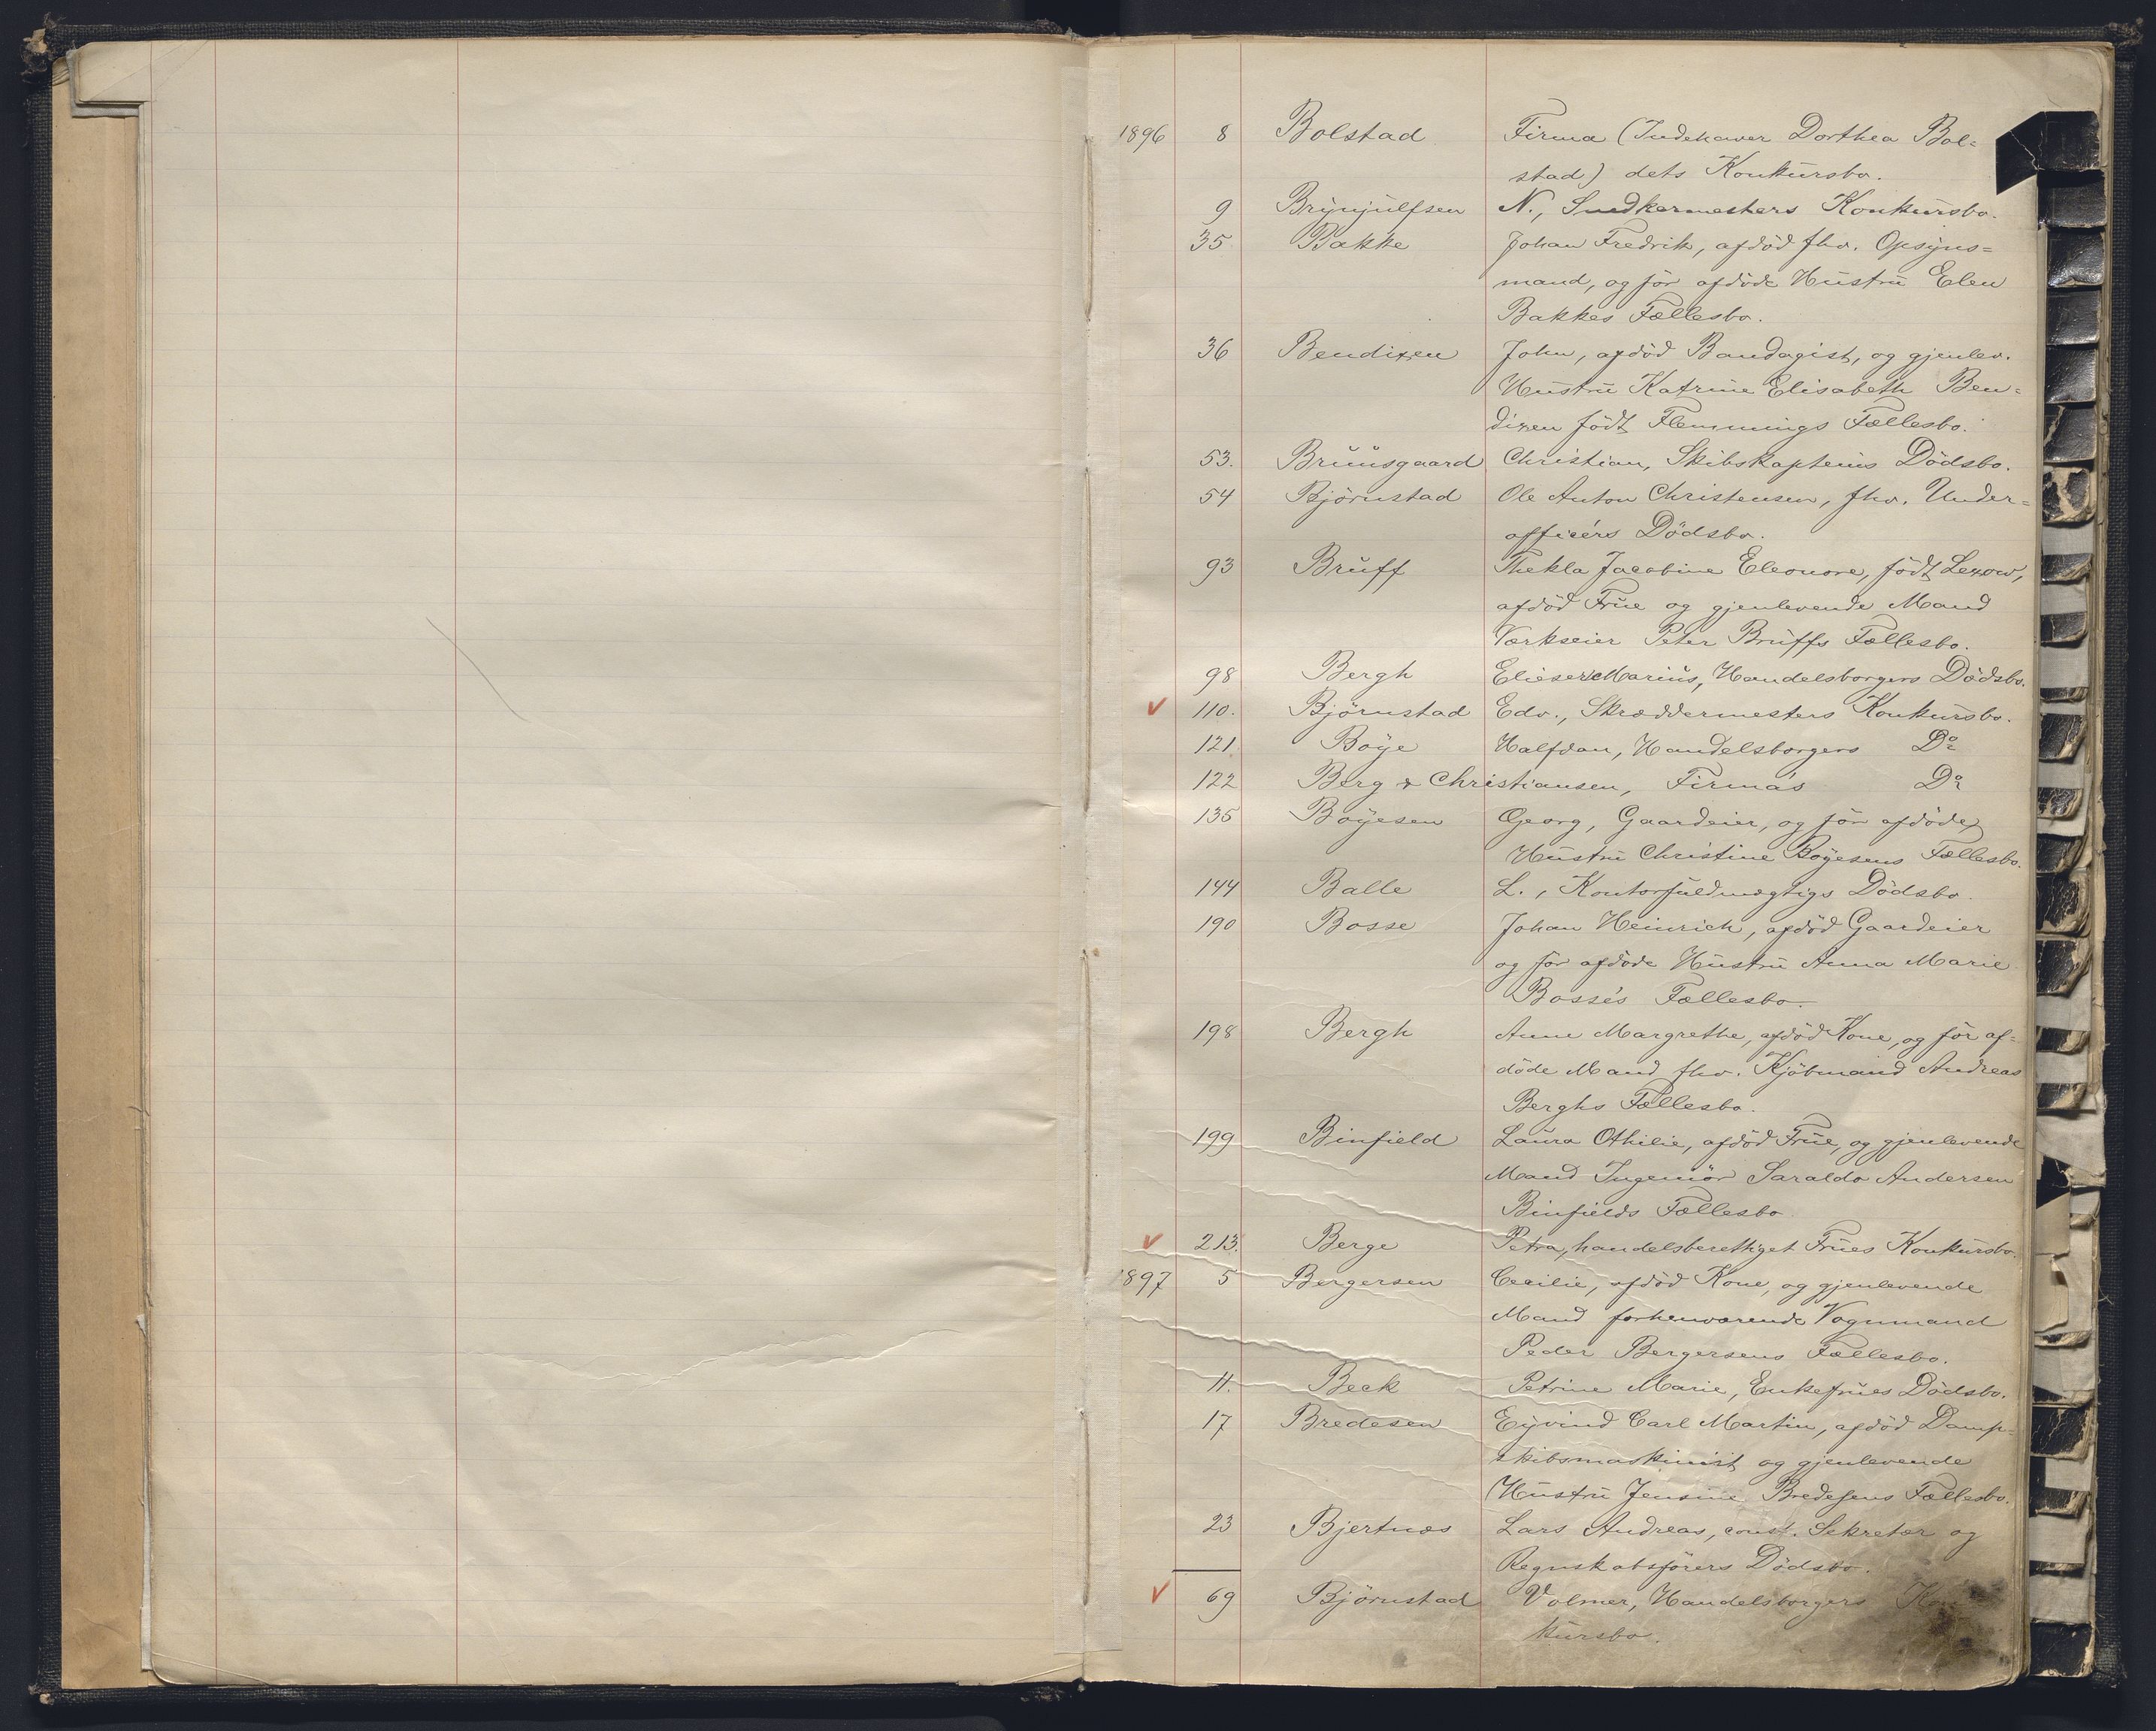 1896 8 Bolstad Firma (Indehaver Dorthea Bol=
stad) dets Konkursbo.
9 Brynjulfsen N., Snedkermesters Konkursbo.
35 Bakke Johan Fredrik, afdöd fhv. Opsyns=
mand, og før afdöde Hustru Elen
Bakkes Fællesbo.
36 Bendixen John, afdöd Bandagist, og gjenlev.
Hustru Katrine Elisabeth Ben=
dixen födt Flemmings Fællesbo.
53. Bruusgaard Christian, Skibskapteins Dödsbo.
54 Björnstad Ole Anton Christensen, fhv. Under=
officérs Dödsbo.
93 Bruff Thekla Jacobine Eleonore, födt Lexow,
afdöd Frue og gjenlevende Mand
Værkseier Peter Bruffs Fællesbo.
98 Bergh Elieser Marius, Handelsborgers Dödsbo.
V 110. Björnstad Edv., Skræddermesters Konkursbo.
121. Boye Halfdan, Handelsborgers Do
122 Berg & Christiansen, Firma's Do
135 Boyesen Georg, Gaardeier, og för afdöde
Hustru Christine Boyesens Fællesbo.
144 Balle L., Kontorfuldmægtigs Dödsbo.
190 Bosse Johan Heinrich, afdöd Gaardeier
og för afdöde Hustru Anna Marie
Bosse's Fællesbo.
198 Bergh Anne Margrethe, afdöd Kone, og för af=
döde Mand fhv. Kjöbmand Andreas
Berghs Fællesbo.
199 Binfield Laura Othilie, afdöd Frue, og gjenlevende
Mand Ingeniör Saraldo Andersen
Binfields Fællesbo
V 213. Berge Petra, handelsberettiget Frues Konkursbo.
1897 5 Bergersen Cecilie, afdöd Kone, og gjenlevende
Mand forhenværende Vognmand
Peder Bergersens Fællesbo.
11. Beck Petrine Marie, Enkefrues Dödsbo.
17 Bredesen Eyvind Carl Martin, afdöd Damp=
skibsmaskinist og gjenlevende
Hustru Jensine Bredesens Fællesbo.
23 Bjertnæs Lars Andreas, const. Sekretær og
Regnskabsförers Dödsbo.
V 69 Björnstad Volmer, Handelsborgers Kon
kursbo.